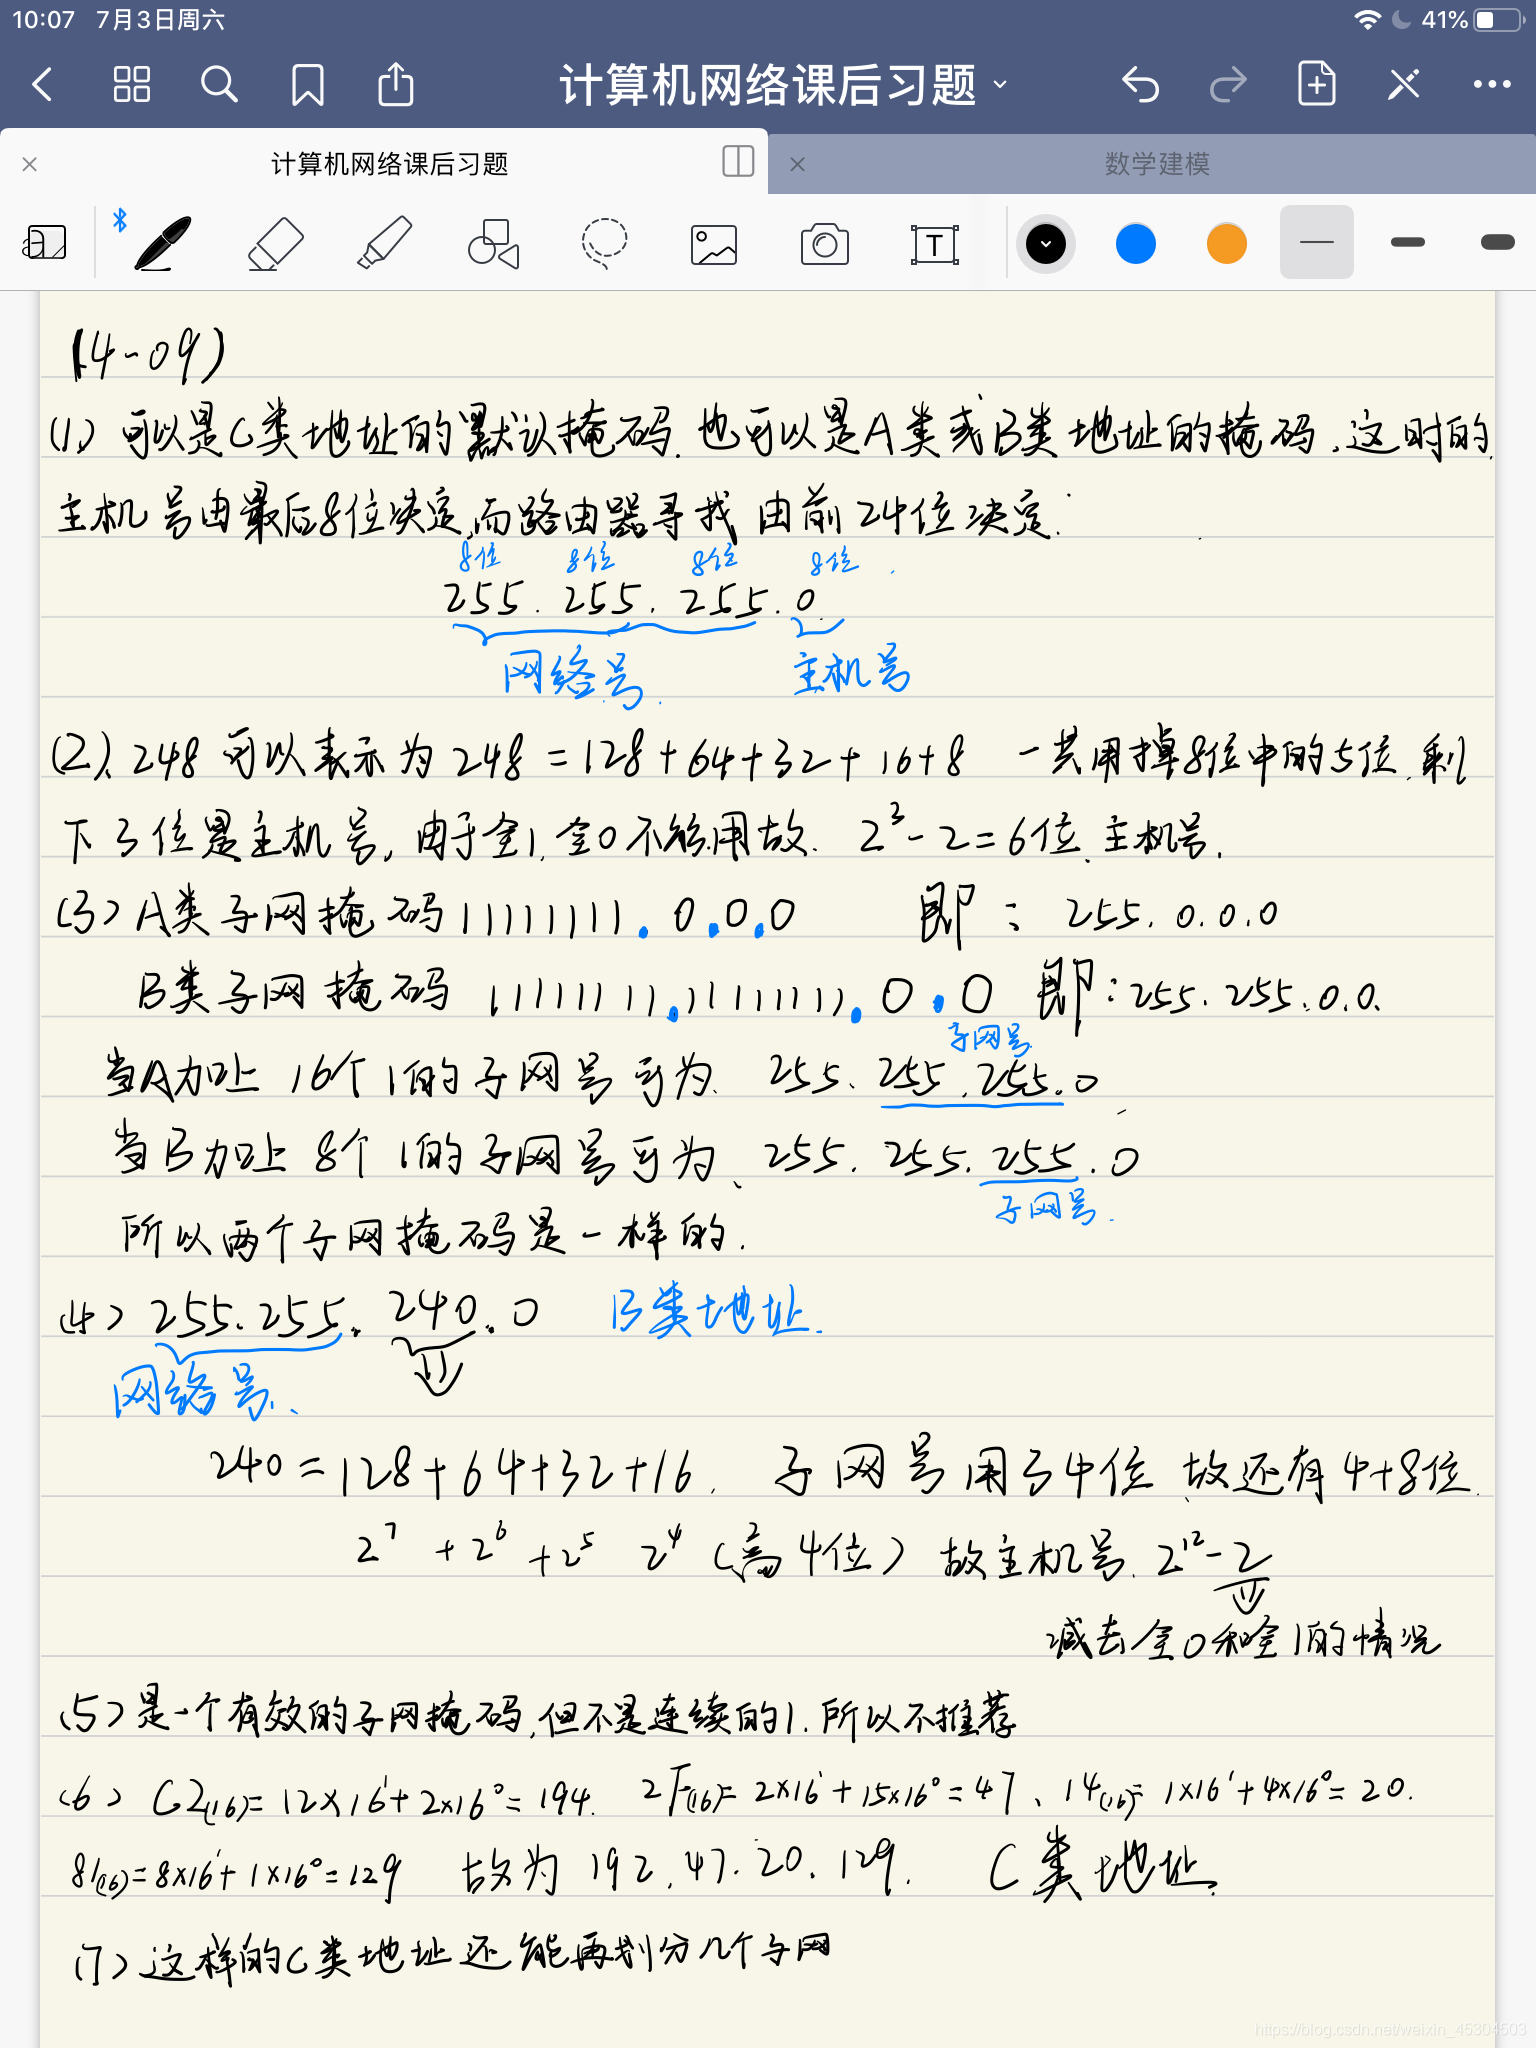 10:07 7月3日周六 41%
计算机网络课后习题
计算机网络课后习题 数学建模
T
(4-09)
(1) 可以是C类地址的默认掩码.也可以是A类或B类地址的掩码.这时的
主机号由最后8位决定,而路由器寻找由前24位决定.
8位 8位 8位 8位
255.255.255.0
网络号 主机号
(2)、248可以表示为248=128+64+32+16+8 一共用掉8位中的5位.剩
下3位是主机号,由于全1.全0不能用故. 2³-2=6位.主机号.
(3) A类子网掩码11111111.0.0.0 即: 255.0.0.0
B类子网掩码 11111111.11111111.0.0 即:255.255.0.0.
子网号
当A加上16个1的子网号可为、255.255.255.0
当B加上8个1的子网号可为、255.255.255.0
子网号.
所以两个子网掩码是一样的.
(4) 255.255.240.0 B类地址.
网络号、
240=128+64+32+16. 子网号用了4位 故还有4+8位.
2⁷ +2⁶ +2⁵ 2⁴ (高4位) 故主机号.2¹²-2
减去全0和全1的情况
(5) 是一个有效的子网掩码,但不是连续的1.所以不推荐
(6) C2(16)=12×16¹+2×16⁰=194. 2F(16)=2×16¹+15×16⁰=47、14(16)=1×16¹+4×16⁰=20.
81(16)=8×16¹+1×16⁰=129 故为192.47.20.129. C类地址.
(7) 这样的C类地址还能再划分几个子网
https://blog.csdn.net/weixin_45304503